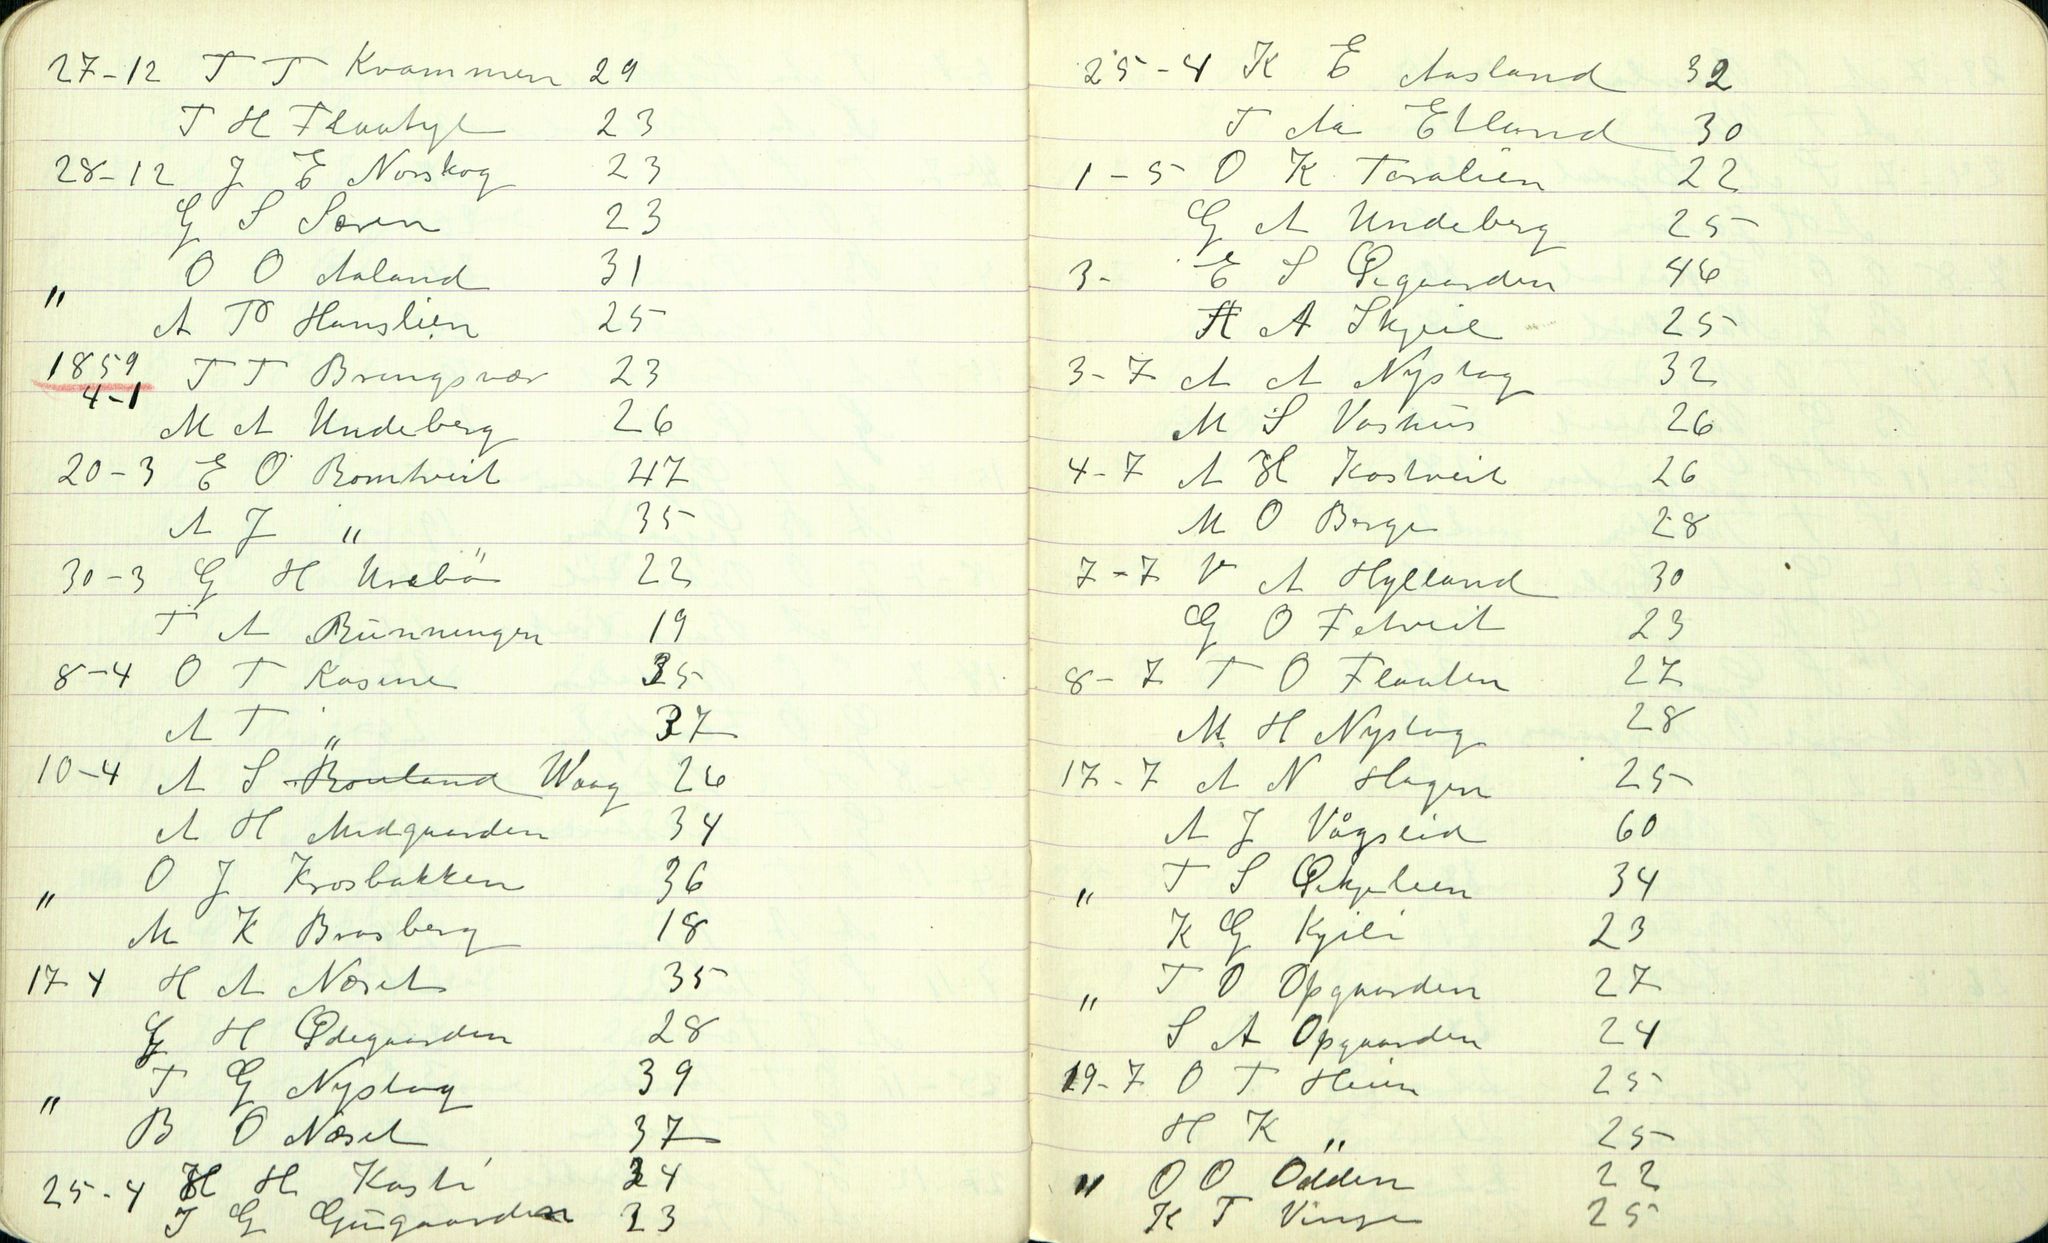 27-12 T T Kvammen 29
T H Flaatyl 23
28-12 J E Norskog 23
G S Særen 23
" O O Aaland 31
A P Hanslien 25
1859
4-1 T T Bringsvær 23
M A Undeberg 26
20-3 E O Bomtveit 47
A J " 35
30-3 G H Urebö 22
T A Bünningen 19
8-4 O T Kasine 35
A T " 37
10-4 A S Bouland Waag 26
A H Midgaarden 34
" O J Krosbakken 36
M K Brosberg 18
17 4 H A Næset 35
G H Ødegaarden 28
" T G Nystog 39
B O Næset 37
25-4 H H Kasti 34
J G Gügaarden 23
25-4 K E Aasland 32
T Aa Etland 30
1-5 O K Taralien 22
G A Undeberg 25
3- E S Øegaarden 46
H A Skjeie 25
3-7 A A Nystog 32
M S Vashus 26
4-7 A H Kostveit 26
M O Berge 28
7-7 V A Hylland 30
G O Fetveit 23
8-7 T O Flaaten 27
M H Nystog 28
17-7 A N Hagen 25
A J Vågslid 60
" T S 34
K G Kyili 23
" T O Opgaarden 27
S A Opgaarden 24
19-7 O T Heim 25
H K " 25
" O O Odden 22
K T Vinje 25